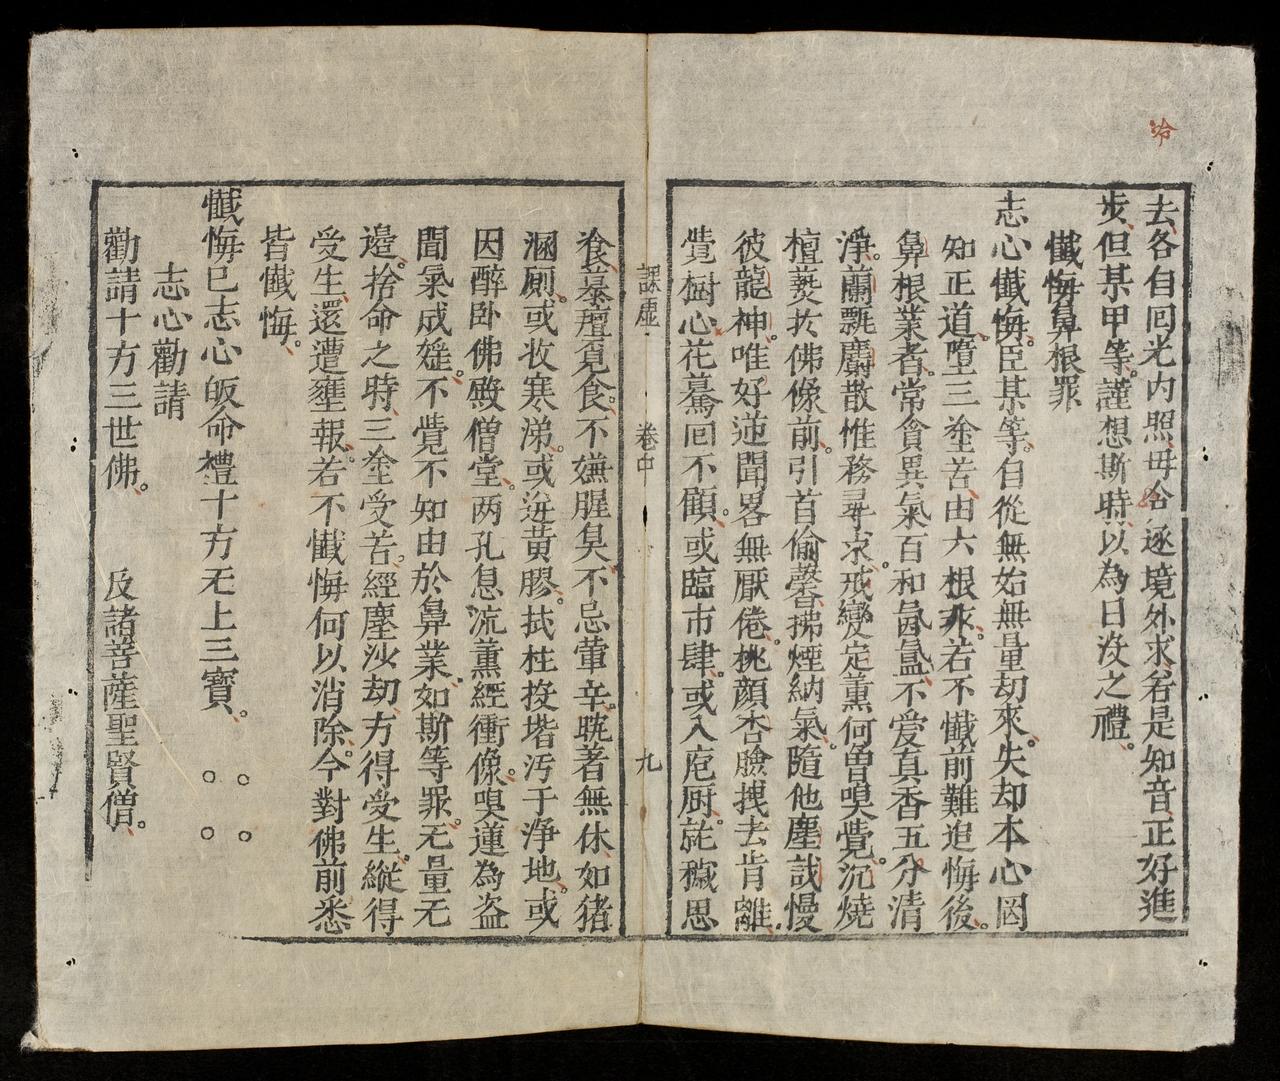 去各自回光内照毋令逐境外求若是知音正好進
步但某甲等謹想斯時以為日没之禮
懺悔鼻根罪
志心懺悔臣某等自從無始無量劫來失却本心罔
知正道墮三塗苦由六根罙若不懺前難追悔後
鼻根業者常貪異氣百和氤氳不愛真香五分清
淨蘭飄麝散惟務尋求戒變定薰何曽嗅覺沉燒
檀爇於佛像前引首偷馨拂煙納氣隨他塵哉慢
彼龍神唯好逆聞畧無厭倦桃顔杏臉拽去肯離
覺樹心花驀回不顧或臨市肆或入庖厨旄穢思
飡葷羶覔食不嫌腥臭不忌葷辛躭著無休如猪
溷廁或收寒涕或迸黄膠拭柱投堦汚于淨地或
因醉卧佛殿僧堂两孔息流薰經衝像嗅蓮為盗
聞氣成婬不覺不知由於鼻業如斯等罪无量无
邊捨命之時三塗受苦經塵沙劫方得受生縱得
受生還遭壅報若不懺悔何以消除今對佛前悉
皆懺悔
懺悔已志心皈命禮十方无上三寳
志心勸請
勸請十方三世佛 及諸菩薩聖賢僧
課虚 卷中 九